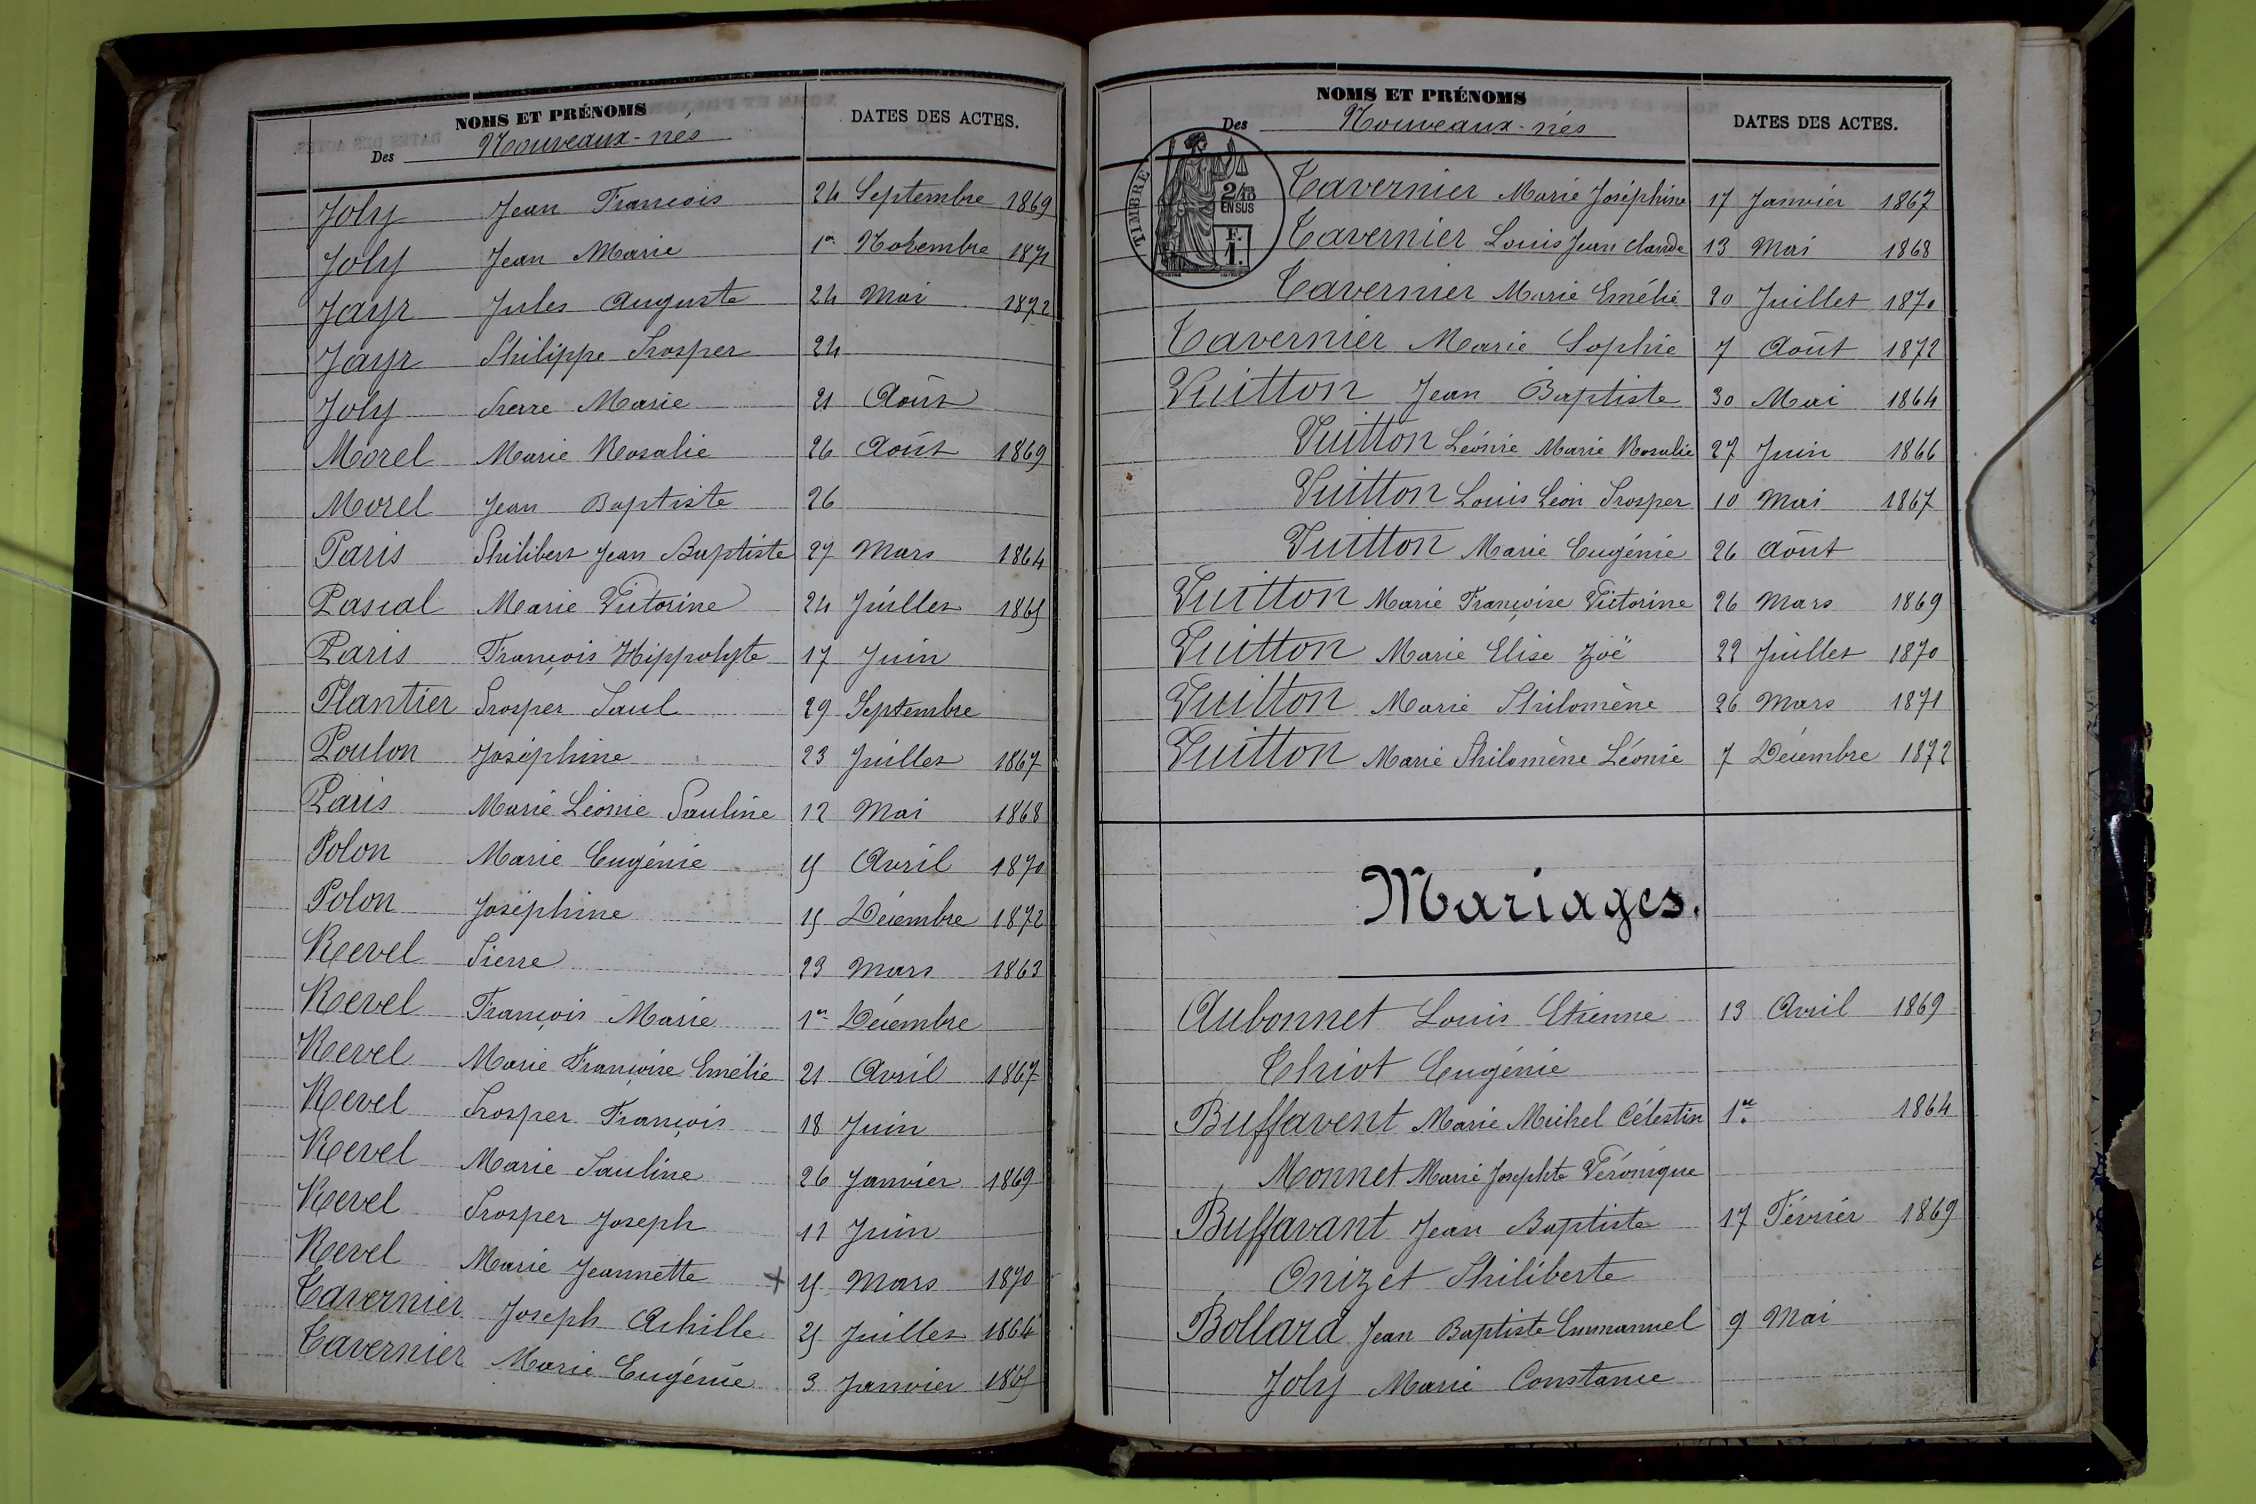 NOMS ET PRÉNOMS
DATES DES ACTES.
Des Nouveaux-nés
Joly Jean François 24 Septembre 1869
Joly Jean Marie 1er Novembre 1871
Jayr Jules Auguste 24 Mai 1872
Jayr Philippe Prosper 24
Joly Pierre Marie 21 Août
Morel Marie Rosalie 26 Août 1869
Morel Jean Baptiste 26
Paris Philibert Jean Baptiste 27 Mars 1864
Pascal Marie Victorine 24 Juillet 1865
Paris François Hippolyte 17 Juin
Plantier Prosper Paul 29 Septembre
Poulon Joséphine 23 Juillet 1867
Paris Marie Léonie Pauline 12 Mai 1868
Polon Marie Eugénie 5 Avril 1870
Polon Joséphine 15 Décembre 1872
Revel Pierre 23 Mars 1863
Revel François Marie 1er Décembre
Revel Marie Françoise Emélie 21 Avril 1867
Revel Prosper François 18 Juin
Revel Marie Pauline 26 Janvier 1869
Revel Prosper Joseph 11 Juin
Revel Marie Jeannette x 15 Mars 1870
Tavernier Joseph Achille 25 Juillet 1864
Tavernier Marie Eugénie 3 Janvier 1865
NOMS ET PRÉNOMS
DATES DES ACTES.
Des Nouveaux-nés
TIMBRE
2/10
EN SUS
F.
1.
Tavernier Marie Joséphine 17 Janvier 1867
Tavernier Louis Jean Claude 13 Mai 1868
Tavernier Marie Emélie 20 Juillet 1870
Tavernier Marie Sophie 7 Août 1872
Vuitton Jean Baptiste 30 Mai 1864
Vuitton Léonie Marie Rosalie 27 Juin 1866
Vuitton Louis Léon Prosper 10 Mai 1867
Vuitton Marie Eugénie 26 Août
Vuitton Marie Françoise Victorine 26 Mars 1869
Vuitton Marie Elise Zoë 22 Juillet 1870
Vuitton Marie Philomène 26 Mars 1871
Vuitton Marie Philomène Léonie 7 Décembre 1872
Mariages.
Aubonnet Louis Etienne 13 Avril 1869
Thiot Eugénie
Buffavent Marie Michel Célestin 1er 1864
Monnet Marie Josephte Véronique
Buffavant Jean Baptiste 17 Février 1869
Onizet Philiberte
Bollard Jean Baptiste Emmanuel 9 Mai
Joly Marie Constance